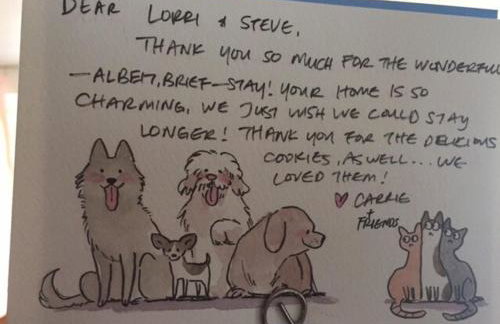 DEAR LORRI & STEVE,
THANK YOU SO MUCH FOR THE WONDERFUL
—ALBEIT, BRIEF—STAY! YOUR HOME IS SO
CHARMING, WE JUST WISH WE COULD STAY
LONGER! THANK YOU FOR THE DELICIOUS
COOKIES, AS WELL... WE
LOVED THEM!
♥ CARRIE
+
FRIENDS